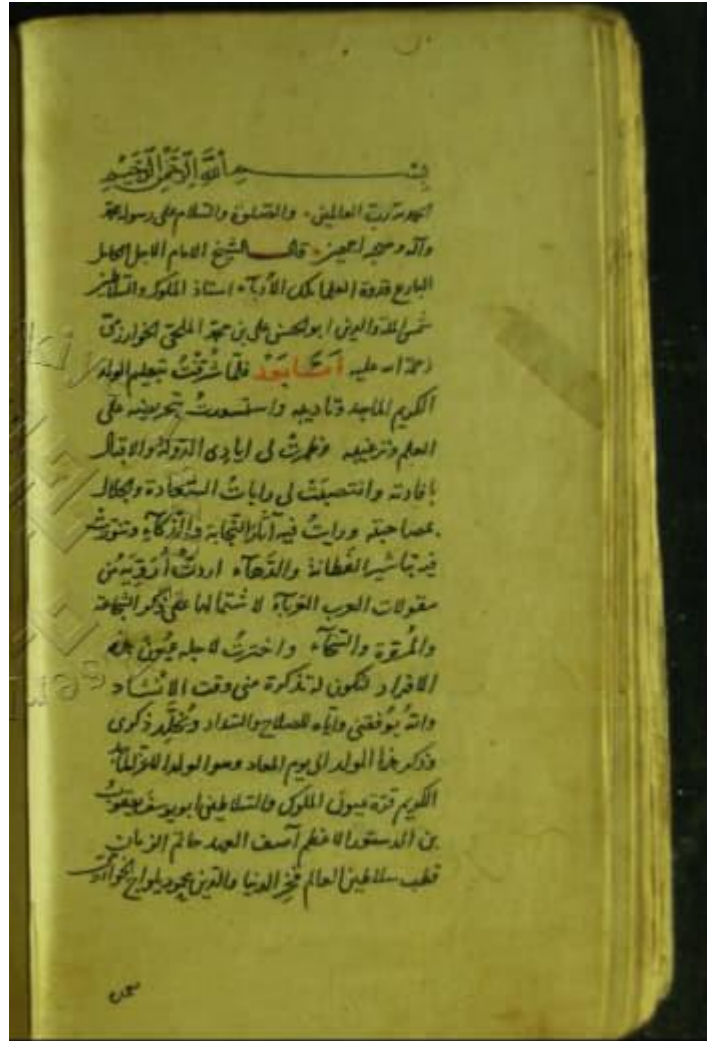 بسم الله الرحمن الرحيم
الحمد لله رب العالمين والصلوة والسلام على رسوله محمد
وآله وصحبه اجمعين قال الشيخ الامام الاجل الكامل
البارع قدوة العلما ملك الأدبآء استاذ الملوك والسلاطين
شمس الملة والدين ابو الحسن على بن محمد الخوارزمى
رحمة الله عليه أمَّا بَعْد فلمّا شُرِّفْتُ بتعليم الولد
الكريم الماجد وتاديبه واستسعدتُ بتحريضه على
العلم وترغيبه وظهرتْ لى ايادى الدّولة والاقبال
بافادته وانتصبَتْ لى راياتُ السّعادة والجلال
بمصاحبته ورايتُ فيه آثار النّجابة والذّكآء وتنوّرتْ
فيه تباشير الفَطانة والدّهآء اردتُ أن من
مقولات العرب العَربآء لاشتمالها على ذكر الشجاعة
والمُرُوّة والسّخآء واخترتُ لاجله عيُون هذه
الافراد لتكون له تذكرة منى وقت الانشاد
والله يُوفّقنى وايّاه للصلاح والسّداد ويُخلِّد ذكرى
وذكر هذا الولد الى يوم المعاد وهو الولد
الكريم قرّة عيون الملوك والسّلاطين ابو يوسف يعقوب
بن الدستور الاعظم آصف العهد حاتم الزمان
قطب سلاطين العالم فخر الدنيا والدين محمود يلواج الخوارزمى